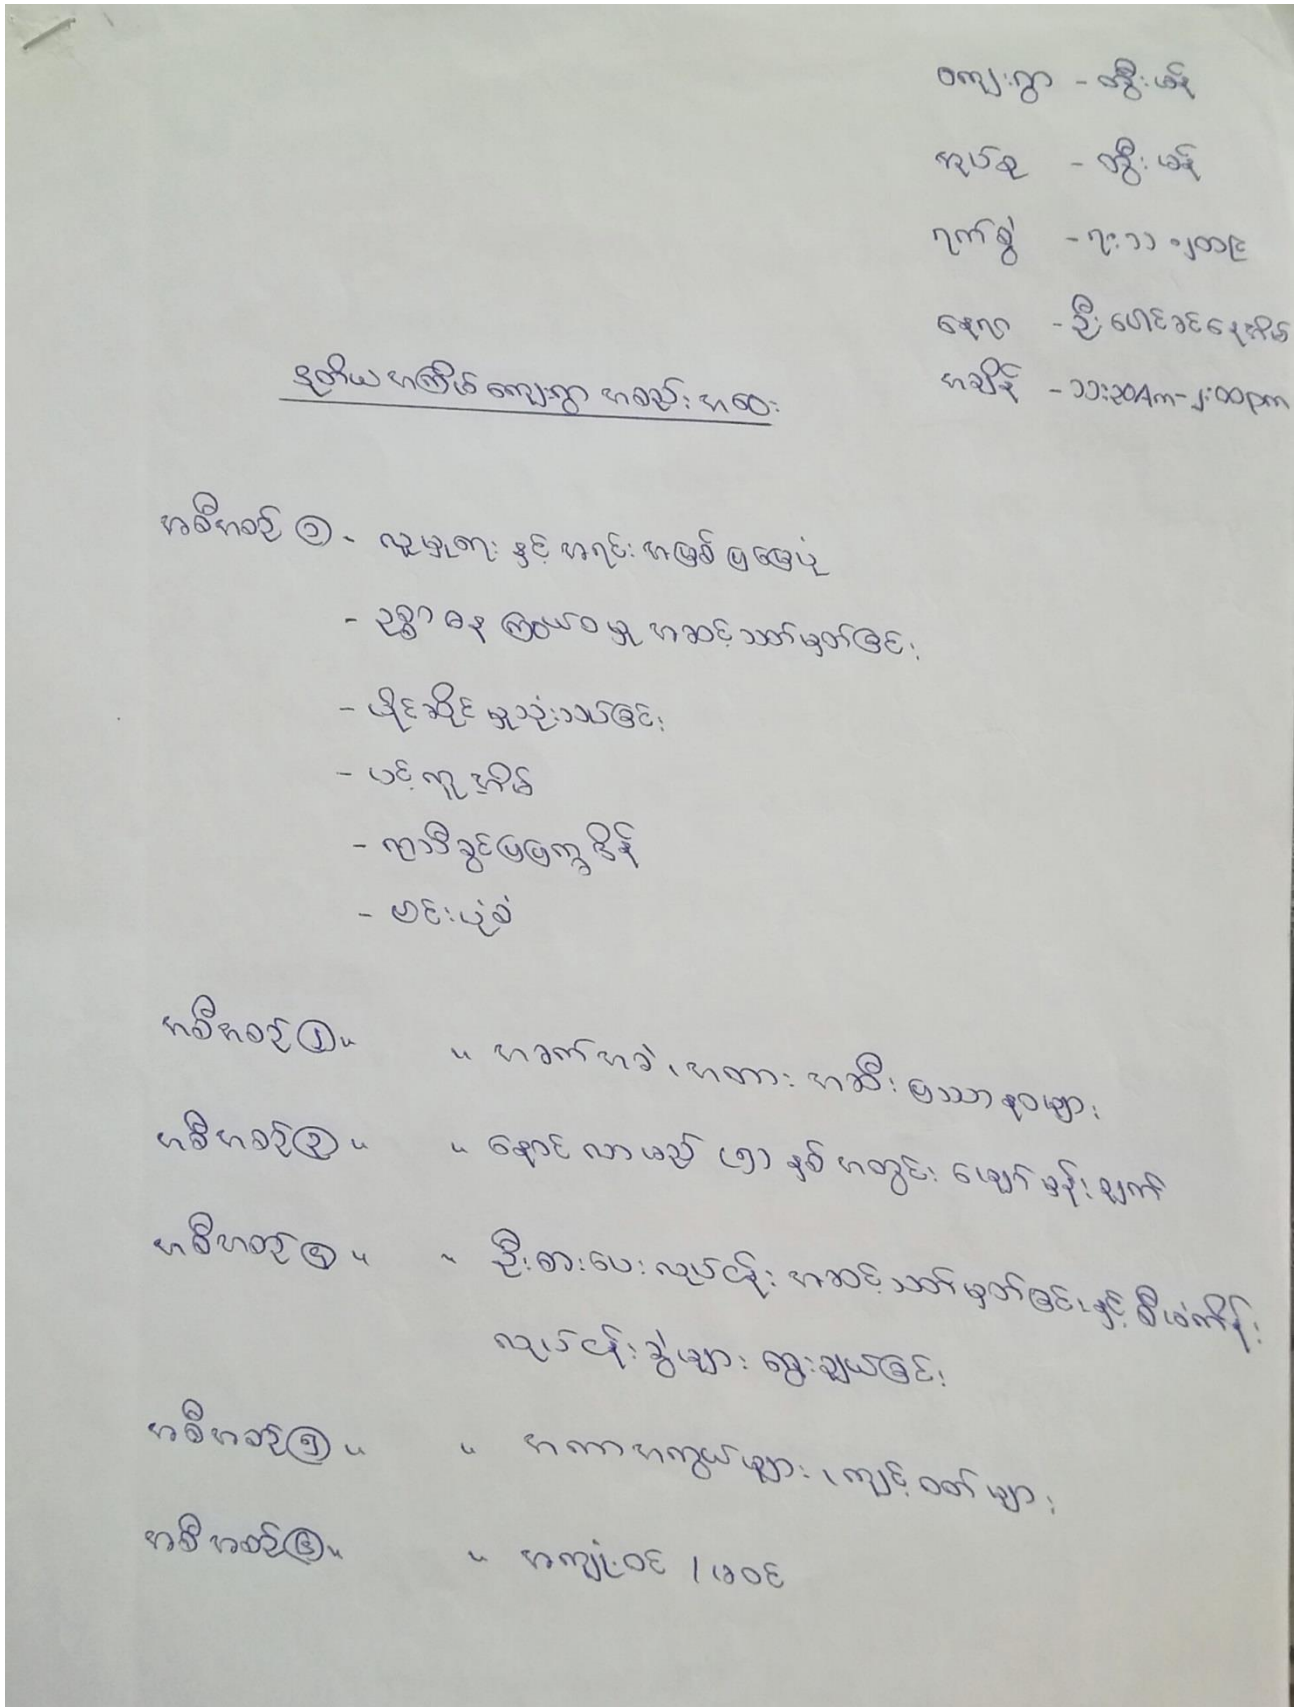 ကျေးရွာ - ထီးမန်
အုပ်စု - ထီးမန်
ရက်စွဲ - ၇.၁၁.၂၀၁၉
နေရာ - ဦးပေါင်ခင်နေအိမ်
အချိန် - ၁၁:၃၀Am-၂:၀၀pm
ဒုတိယအကြိမ်ကျေးရွာအစည်းအဝေး
အစီအစဉ် ၁ - လူမှုရေးနှင့်အရင်းအမြစ်ပြမြေပုံ
- ဥစ္စာဓနကြွယ်ဝမှုအဆင့်သတ်မှတ်ခြင်း
- ပိုင်ဆိုင်မှုသုံးသပ်ခြင်း
- ပင့်ကူအိမ်
- ရာသီခွင်ပြပြက္ခဒိန်
- ဗင်းပုံစံ
အစီအစဉ် ၂ " " အခက်အခဲ၊ အတားအဆီးပြဿနာများ
အစီအစဉ် ၃ " " နောင်လာမည့် (၅) နှစ်အတွင်း မျှော်မှန်းချက်
အစီအစဉ် ၄ " " ဦးစားပေးလုပ်ငန်းအဆင့်သတ်မှတ်ခြင်းနှင့် စီမံကိန်း
လုပ်ငန်းခွဲများ ရွေးချယ်ခြင်း
အစီအစဉ် ၅ " " အကာအကွယ်များ၊ ကျင့်ဝတ်များ
အစီအစဉ် ၆ " " အကျုံးဝင် / မဝင်